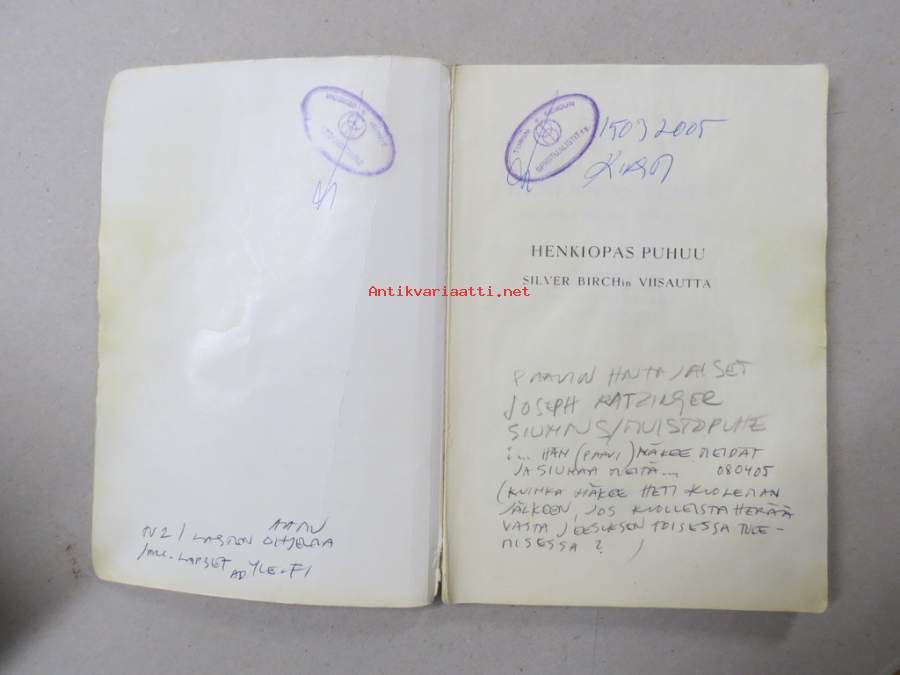 TV2 / LASTEN OHJELMA
LAPSET AD YLE.FI
TURUN SEUDUN
SPIRITUALISTIT
2005
HENKIOPAS PUHUU
SILVER BIRCHin VIISAUTTA
Antikvariaatti.net
PAAVIN HAUTAJAISET
JOSEPH RATZINGER
SIUNAUS/MUISTOPUHE
... HÄN (PAAVI) NÄKEE MEIDÄT
JA SIUNAA MEITÄ... 080405
(KUINKA NÄKEE HETI KUOLEMAN
JÄLKEEN, JOS KUOLLEISTA HERÄÄ
VASTA JEESUKSEN TOISESSA TULE-
MISESSA? )